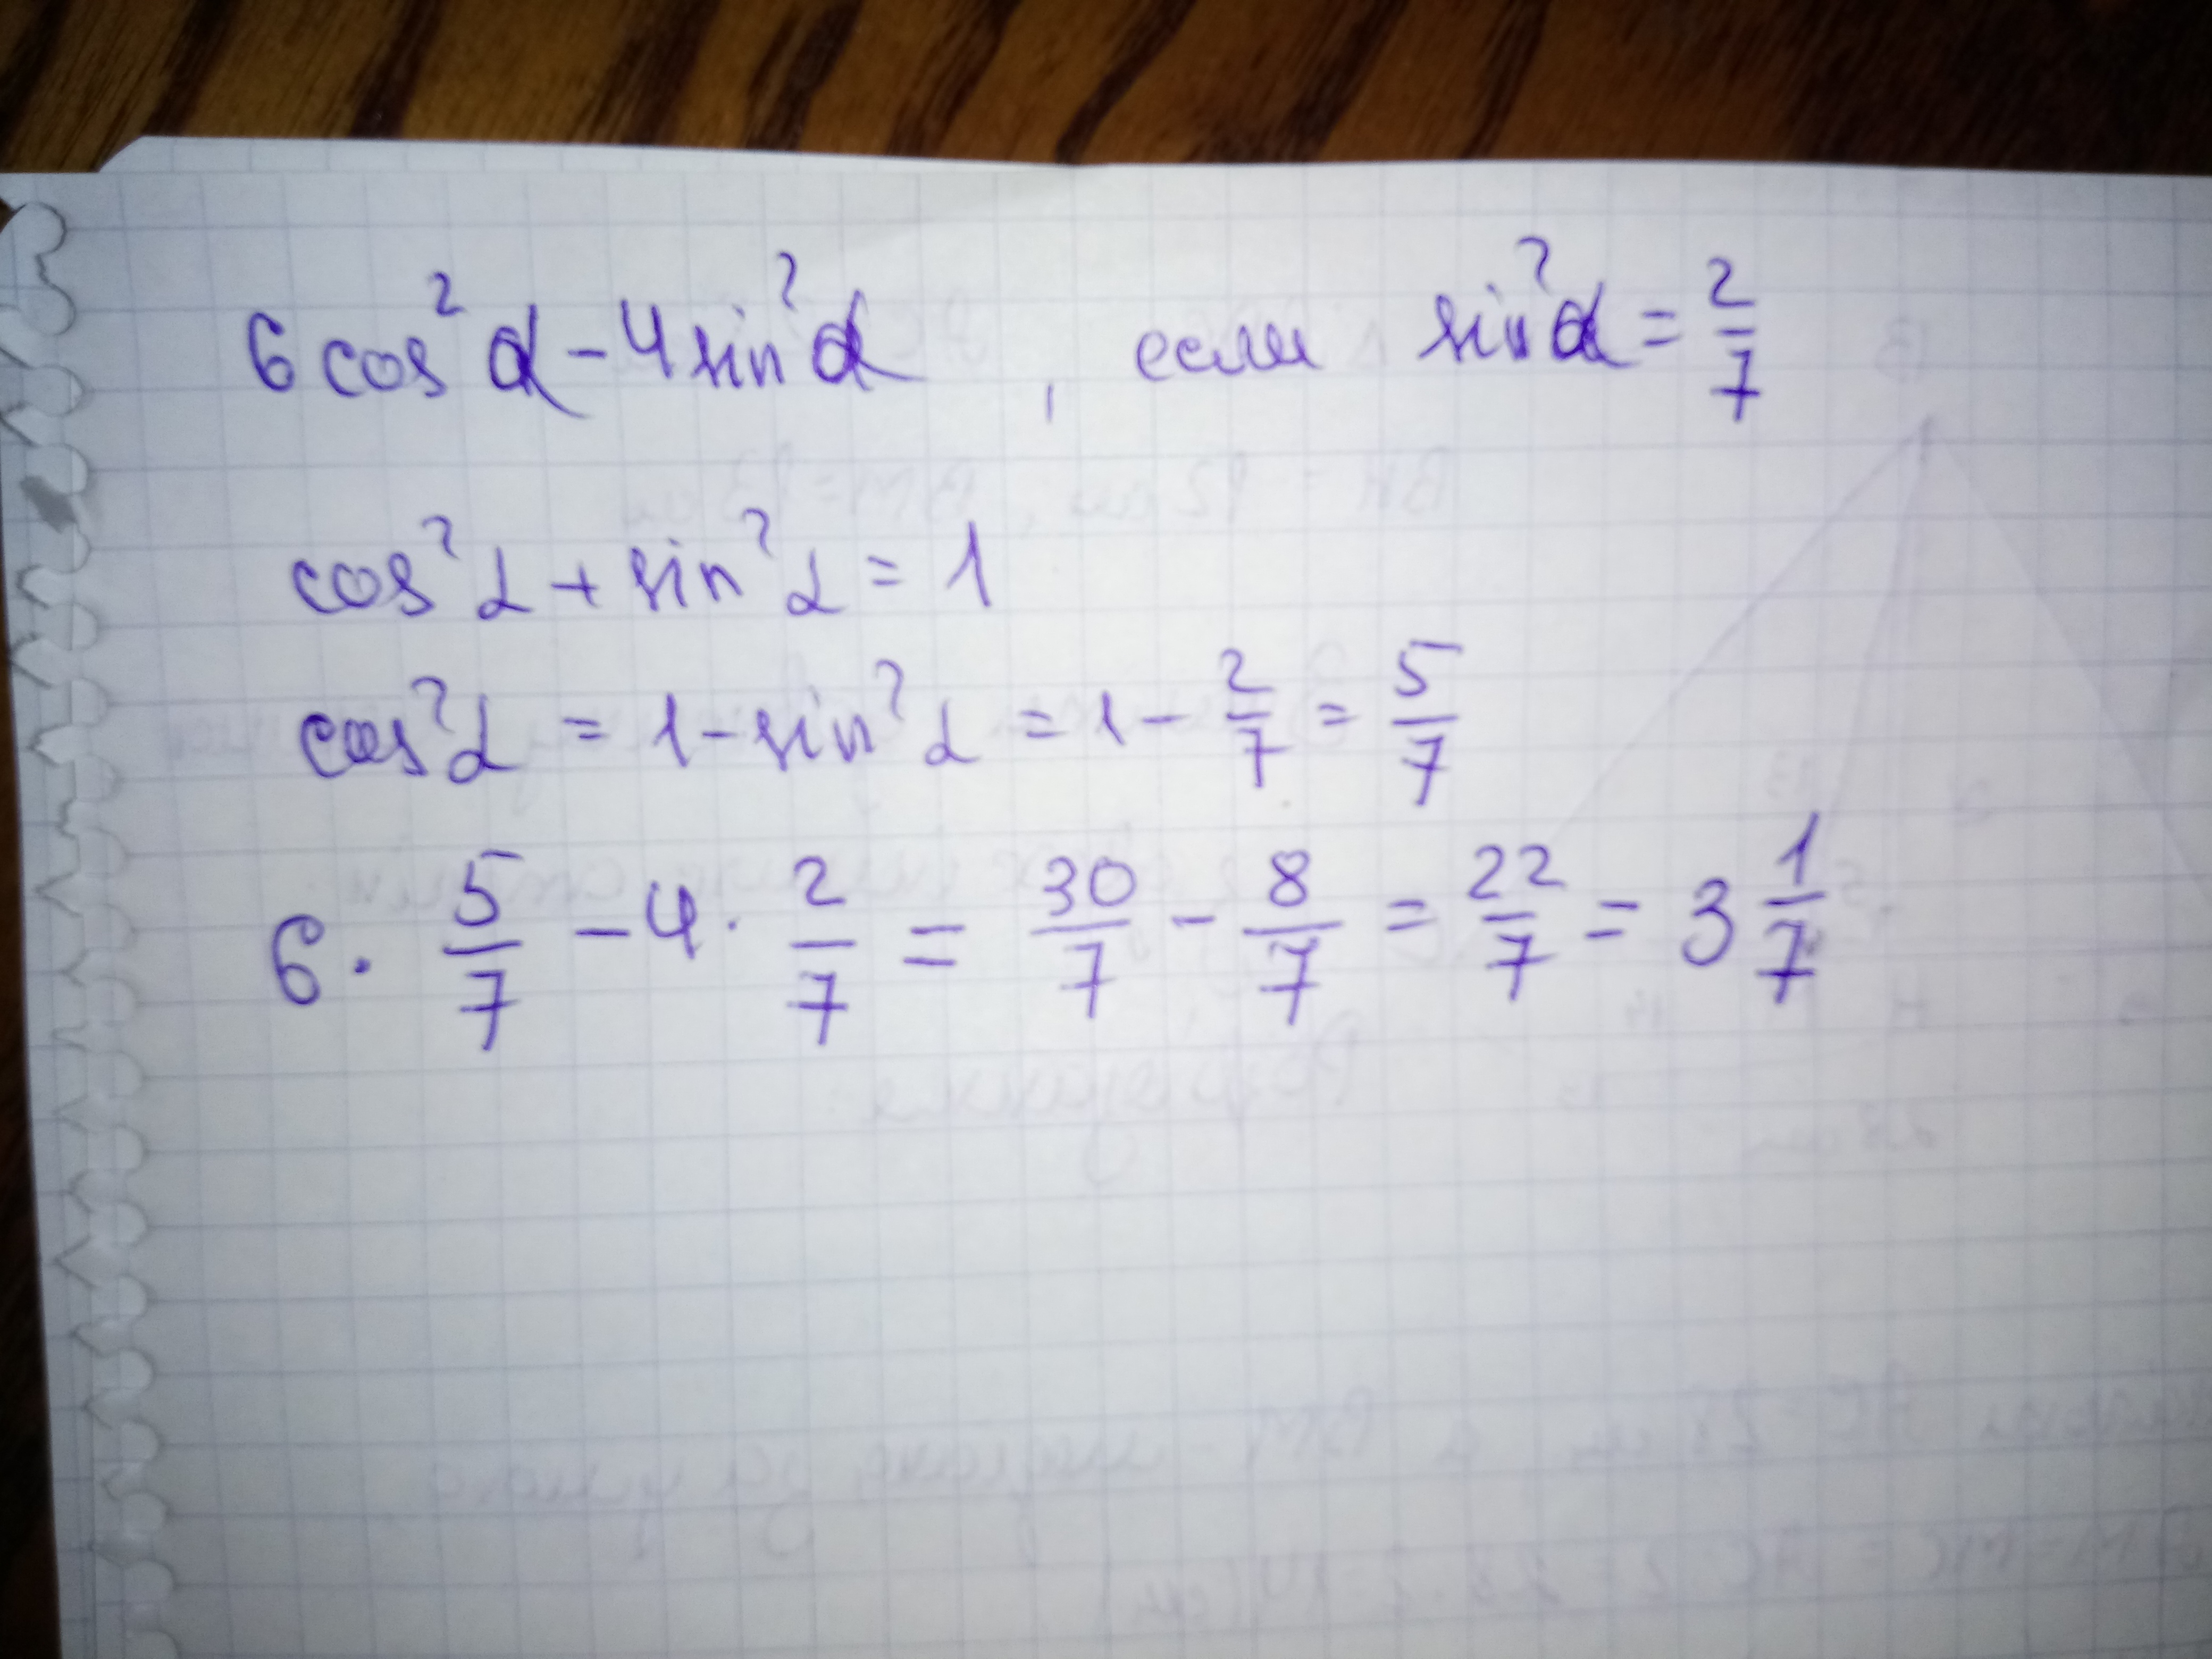 6 cos² α - 4 sin² α , если sin² α = 2/7
cos² α + sin² α = 1
cos² α = 1 - sin² α = 1 - 2/7 = 5/7
6 · 5/7 - 4 · 2/7 = 30/7 - 8/7 = 22/7 = 3 1/7